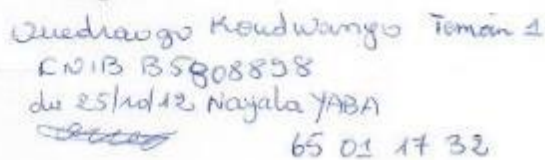 Ouedraogo Koudwango Temoin 1
CNIB B5808898
du 25/10/12 Nayala YABA
65 01 17 32